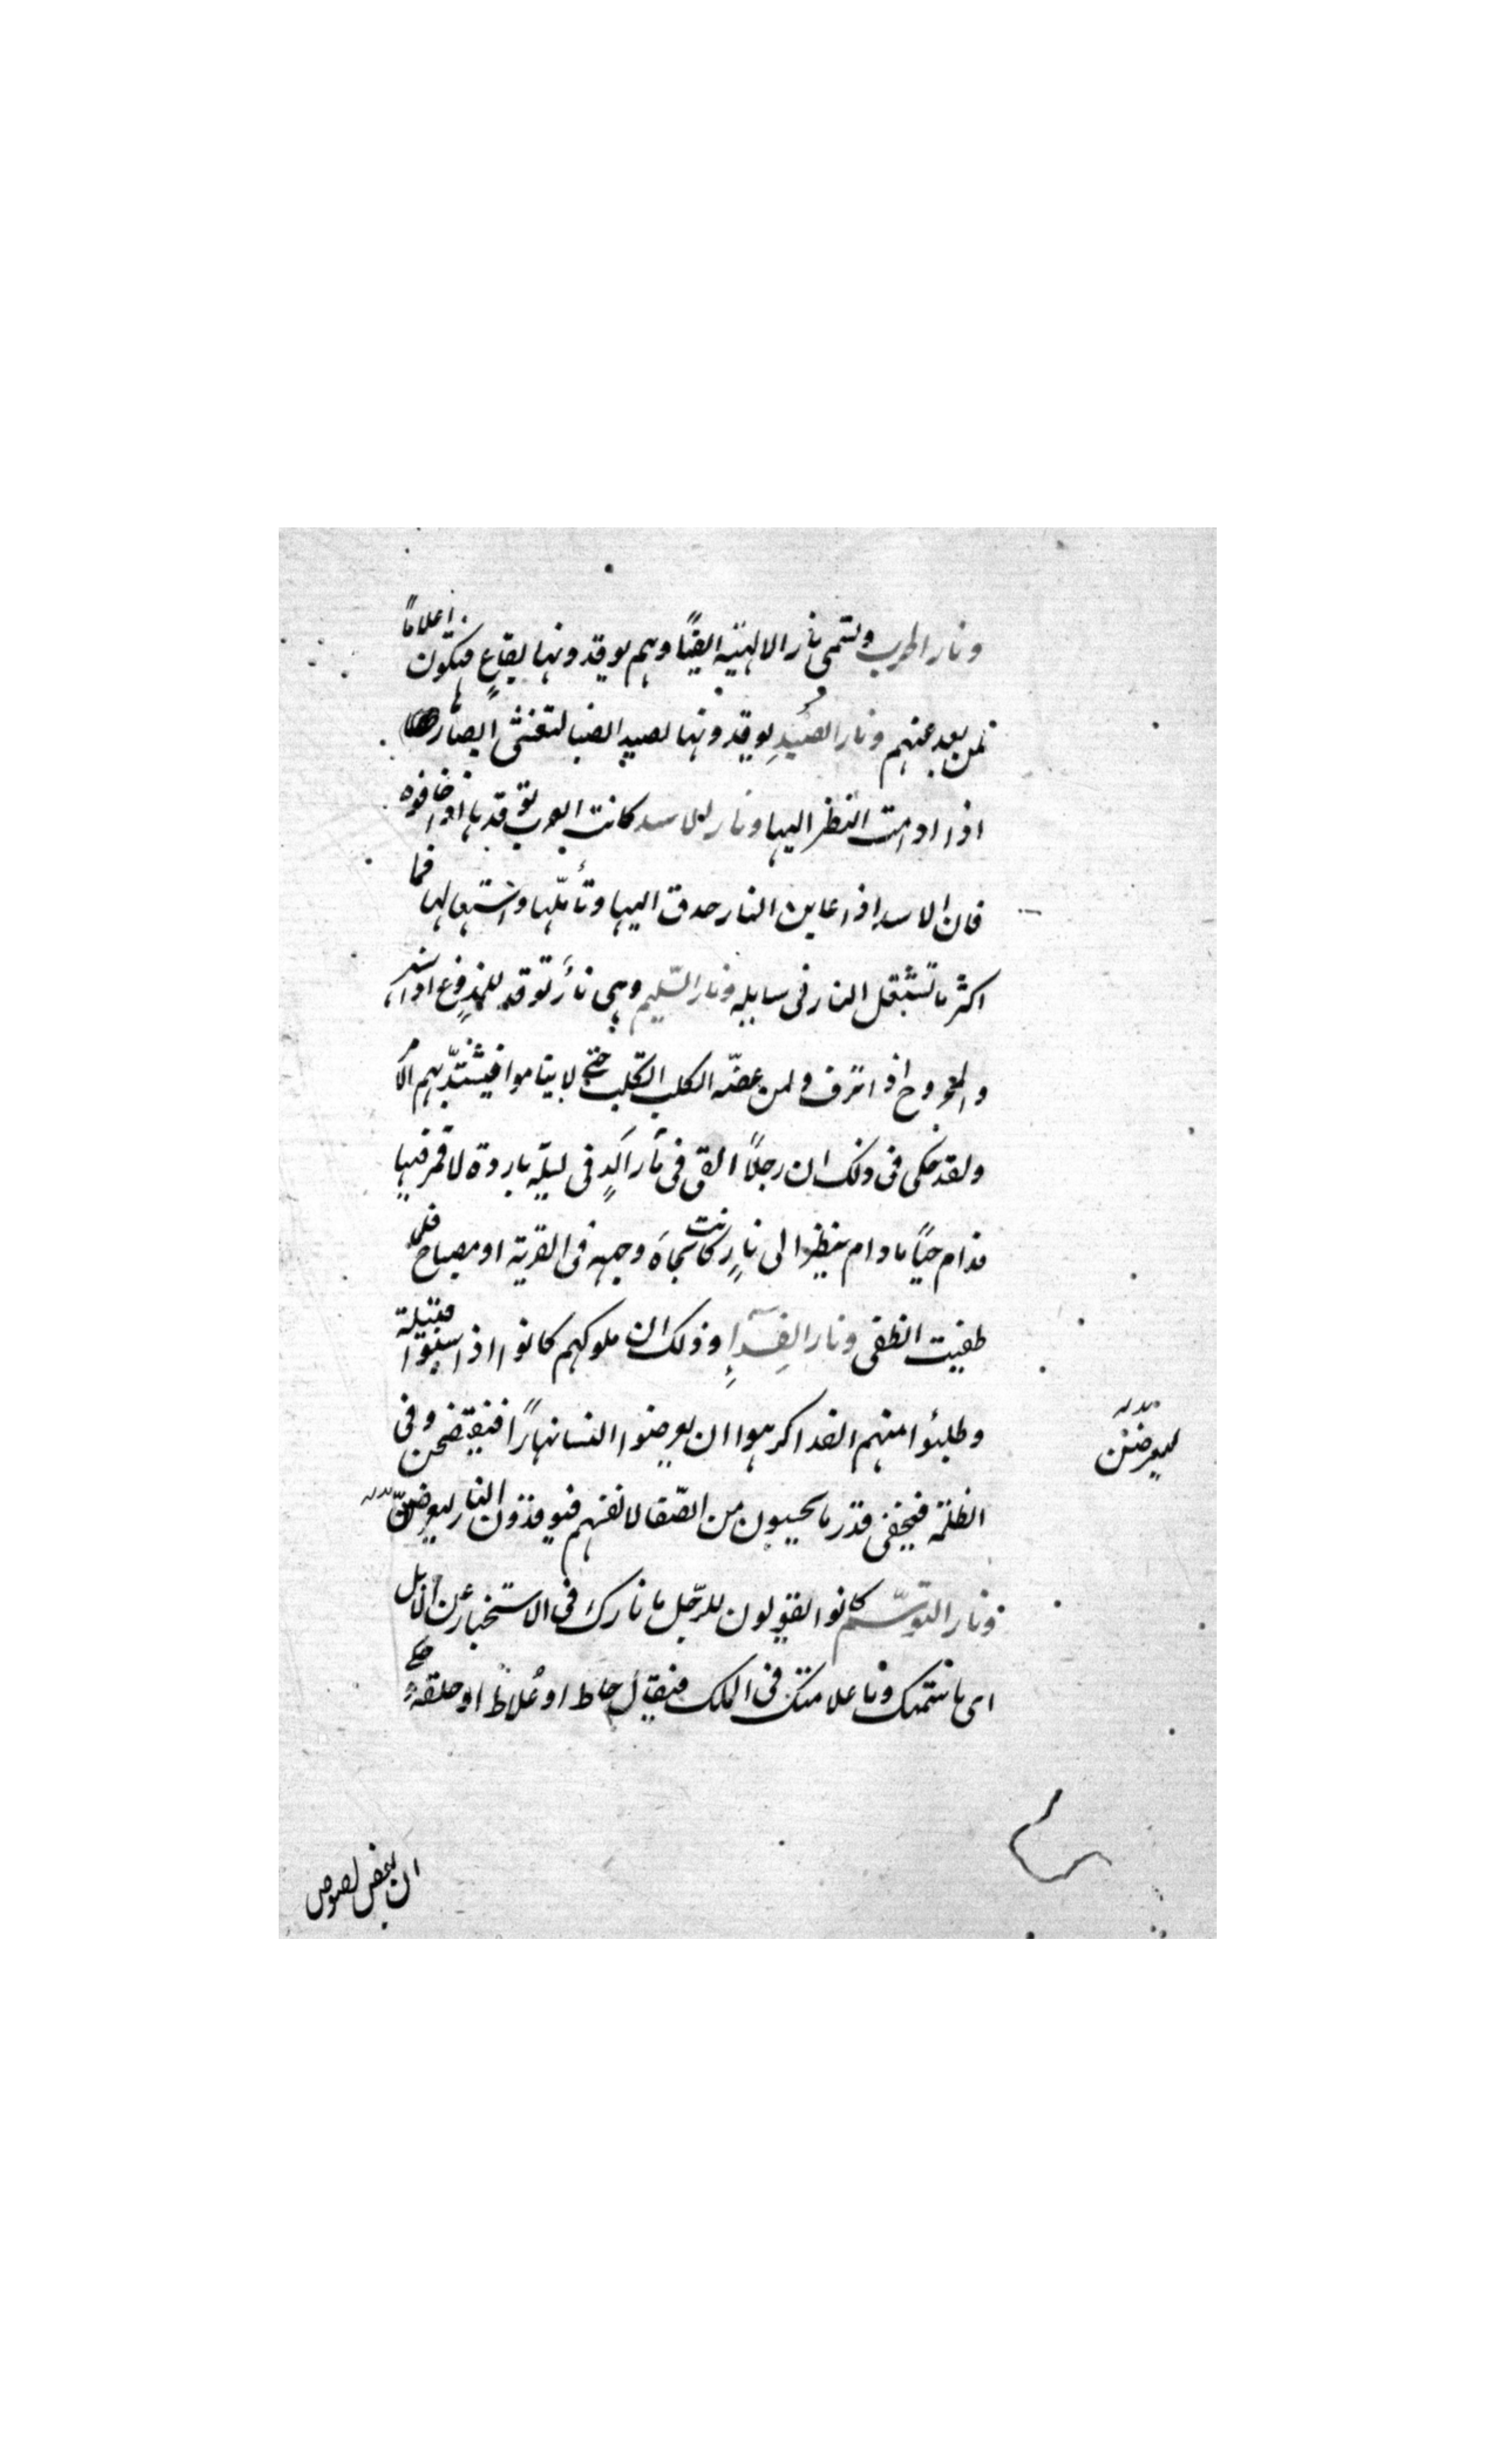 ونار الحرب وتسمى نار الاهبة ايضًا وهم يوقدونها بيفاع فتكون اعلامًا
لمن بعد عنهم ونار الصيد يوقدونها لصيد الضبا لتعشى ابصارها
اذا ادامت النظر اليها ونار الاسد كانت العرب توقدها اذا خافوه
فان الاسد اذا عاين النار حدق اليها وتأملها واشتعالها فما
اكثر ما تشتغل النار فى سابله ونار السّليم وهى نار توقد للملدوغ اذا سهر
والمجروح اذا نزف ولمن عضّه الكلب الكلب حتى لا يناموا فيشتدّ بهم الامر
ولقد حكى فى ذلك ان رجلًا القى فى نار فى ليلة باردة لا قمر فيها
فدام حيًا مادام ينظر الى نارٍ كانت تجاه وجهه فى القرية او مصباح فلما
طفيت انطفى ونار الفدآءِ وذلك ان ملوكهم كانوا اذا سبوا قبيلة
وطلبوا منهم الفدا كرهوا ان يعرضوا النسا نهارًا فيفتضحن وفى
الظلمة فيخفى قدر ما يحبسون من الصّفا لانفسهم فيوقدون النار ليعرضنّ
ليعرضن
ونار التوسّم كانوا يقولون للرّجل ما نارك فى الاستخبار عن الابل
اى ما سمتك وما علامتك فى الملك فيقال خباط او علاط او حلقة حكى
ان بعض لصوص